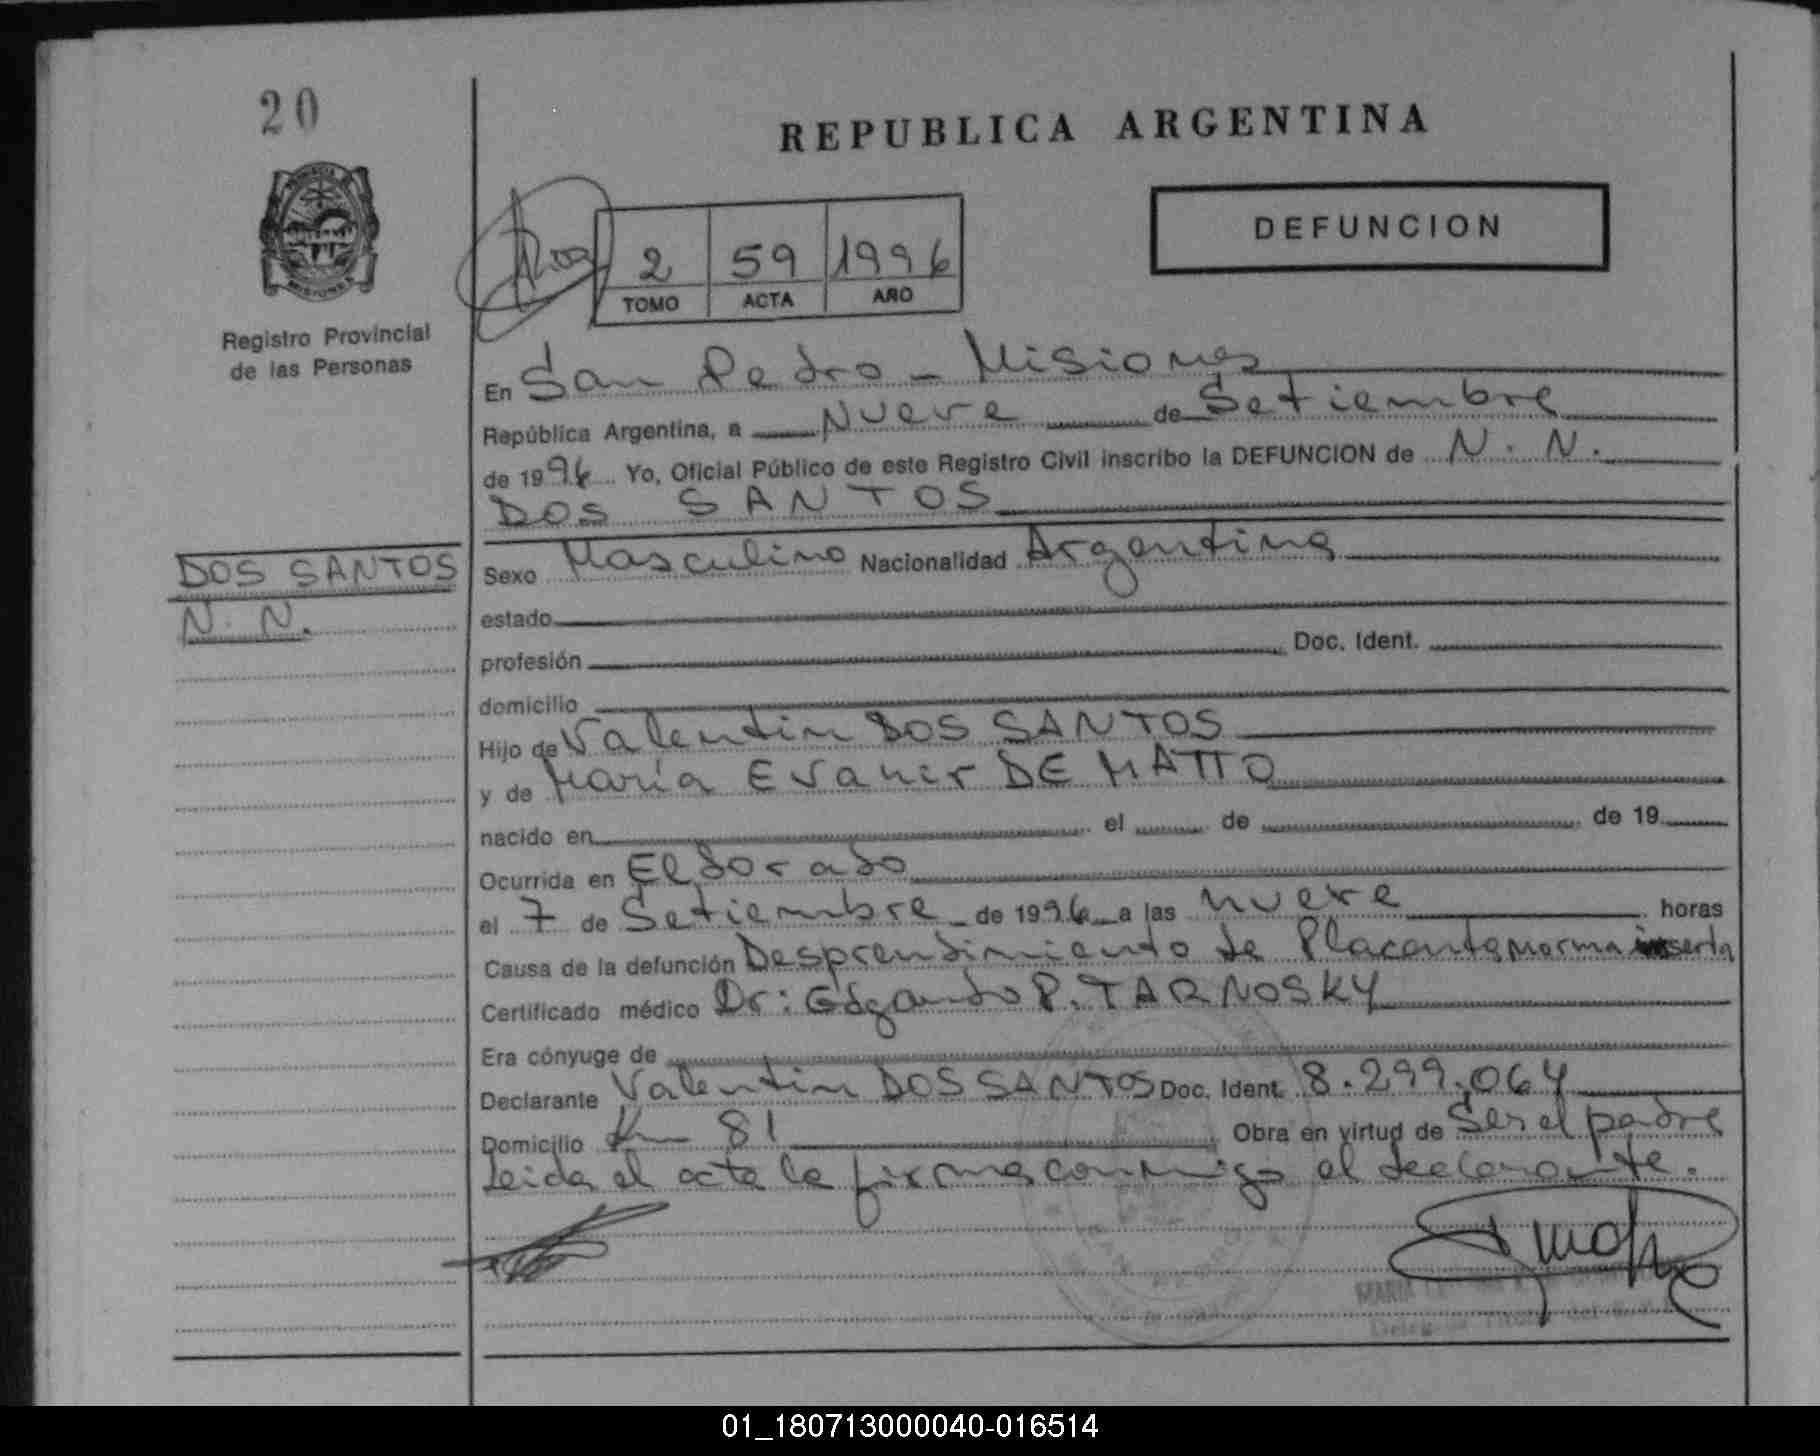 20
REPUBLICA ARGENTINA
DEFUNCION
2 59 1996
TOMO ACTA AÑO
MISIONES
Registro Provincial
de las Personas
En San Pedro - Misiones
República Argentina, a Nueve de Setiembre
de 1996 Yo, Oficial Público de este Registro Civil inscribo la DEFUNCION de N. N.
DOS SANTOS
DOS SANTOS
N. N.
Sexo Masculino Nacionalidad Argentina
estado
profesión Doc. Ident.
domicilio
Hijo de Valentin DOS SANTOS
y de María Evanir DE MATTO
nacido en el de de 19
Ocurrida en Eldorado
el 7 de Setiembre de 1996 a las nueve horas
Causa de la defunción Desprendimiento de Placenta norma inserta
Certificado médico Dr: Edgardo P. TARNOSKY
Era cónyuge de
Declarante Valentin DOS SANTOS Doc. Ident. 8.299.064
Domicilio Km 81 Obra en virtud de Ser el padre
Leida el acta la firma conmigo el declarante.
MARIA
01_180713000040-016514